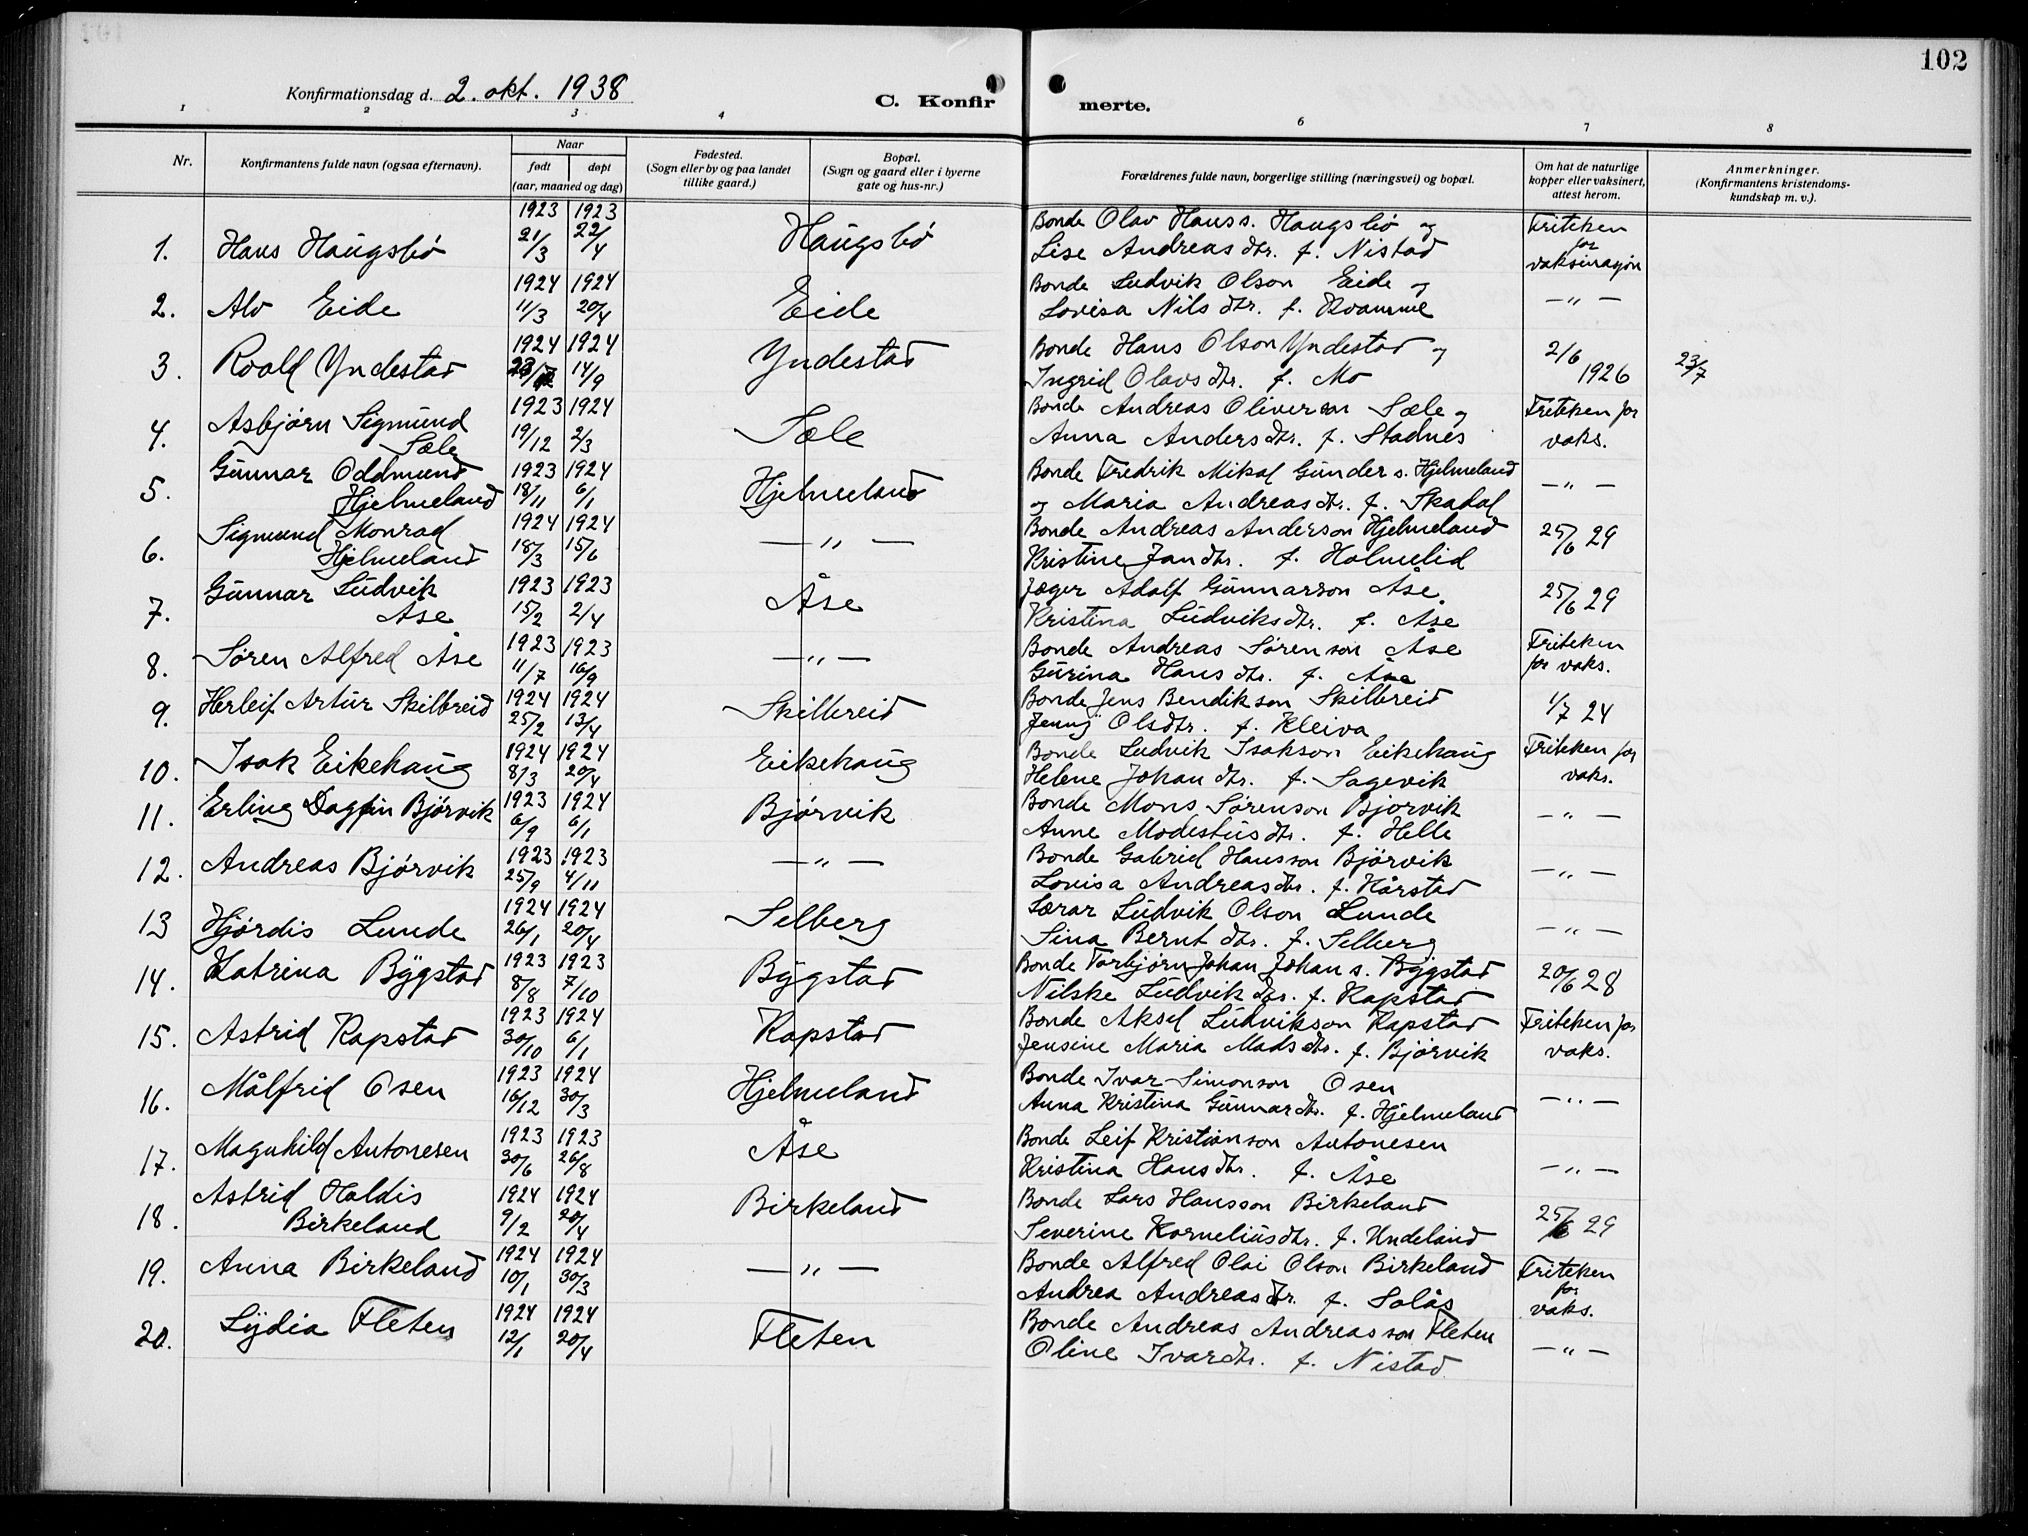 102
Konfirmationsdag d. 2. okt. 1938
C. Konfir merte.
1 2 3 4 6 7 8
Nr.
Konfirmantens fulde navn (ogsaa efternavn).
Naar
født døpt
(aar, maaned og dag)
Fødested.
(Sogn eller by og paa landet
tillike gaard.)
Bopæl.
(Sogn og gaard eller i byerne
gate og hus-nr.)
Forældrenes fulde navn, borgerlige stilling (næringsvei) og bopæl.
Om hat de naturlige
kopper eller vaksinert,
attest herom.
Anmerkninger.
(Konfirmantens kristendoms-
kundskap m. v.).
1923 1923 Bonde Olav Hanss. Haugsbø og Friteken
1. Hans Haugsbø 21/3 22/4 Haugsbø Lise Andreasdtr. f. Nistad for vaksinasjon
1924 1924 Bonde Ludvik Olson Eide og
2. Alv Eide 11/3 20/4 Eide Lovisa Nilsdtr. f. Kvamme — " —
1924 1924 Bonde Hans Olson Yndestad og 2/6
3. Roald Yndestad 14/9 Yndestad Ingrid Olavsdtr. f. Mo 1926 23/7
Asbjørn Sigmund 1923 1924 Bonde Andreas Oliverson Sæle og Friteken for
4. Sæle 19/12 2/3 Sæle Anna Andersdtr. f. Stadnes vaks.
Gunnar Oddmund 1923 1924 Bonde Fredrik Mikal Gunders. Hjelmeland
5. Hjelmeland 18/11 6/1 Hjelmeland og Maria Andreasdtr. f. Skadal — " —
Sigmund Monrad 1924 1924 Bonde Andreas Anderson Hjelmeland
6. Hjelmeland 18/3 15/6 — " — Kristine Jandtr. f. Holmelid 25/6 29
Gunnar Ludvik 1923 1923 Jæger Adolf Gunnarson Åse
7. Åse 15/2 2/4 Åse Kristina Ludviksdtr. f. Åse 25/6 29
1923 1923 Bonde Andreas Sørenson Åse Friteken
8. Søren Alfred Åse 11/7 16/9 — " — Gurina Hansdtr. f. Åse for vaks.
1924 1924 Bonde Jens Bendikson Skilbreid
9. Herleif Artur Skilbreid 25/2 13/4 Skilbreid Jenny Olsdtr. f. Kleiva 1/7 24
1924 1924 Bonde Ludvik Isakson Eikehaug Friteken for
10. Isak Eikehaug 8/3 20/4 Eikehaug Helene Johandtr. f. Sagevik vaks.
1923 1924 Bonde Mons Sørenson Bjørvik
11. Erling Dagfin Bjørvik 6/9 6/1 Bjørvik Anne Modestusdtr. f. Helle — " —
1923 1923 Bonde Gabriel Hansson Bjørvik
12. Andreas Bjørvik 25/9 4/11 — " — Lovisa Andreasdtr. f. Hårstad — " —
1924 1924 Lærar Ludvik Olson Lunde
13 Hjørdis Lunde 26/1 20/4 Selberg Sina Berntdtr. f. Selberg — " —
1923 1923 Bonde Torbjørn Johan Johans. Bygstad
14. Katrina Bygstad 8/8 7/10 Bygstad Nilske Ludvikdtr. f. Rapstad 20/6 28
1923 1924 Bonde Aksel Ludvikson Rapstad Friteken for
15. Astrid Rapstad 30/10 6/1 Rapstad Jensine Maria Madsdtr. f. Bjørvik vaks.
1923 1924 Bonde Ivar Simonson Osen
16. Målfrid Osen 16/12 30/3 Hjelmeland Anna Kristina Gunnardtr. f. Hjelmeland — " —
1923 1923 Bonde Leif Kristianson Antonesen
17. Magnhild Antonesen 30/6 26/8 Åse Kristina Hansdtr. f. Åse — " —
Astrid Haldis 1924 1924 Bonde Lars Hansson Birkeland
18. Birkeland 9/2 20/4 Birkeland Severine Korneliusdtr. f. Undeland 25/6 29
1924 1924 Bonde Alfred Olai Olson Birkeland Friteken
19. Anna Birkeland 10/1 30/3 — " — Andrea Andreasdtr. f. Solås for vaks.
1924 1924 Bonde Andreas Andreasson Fleten
20. Lydia Fleten 12/1 20/4 Fleten Oline Ivardtr. f. Nistad — " —